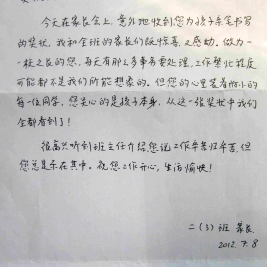 今天在家长会上,意外地收到您为孩子亲笔书写
的奖状,我和全班的家长们既惊喜又感动。做为一
校之长的您,每天有那么多事务要处理,工作繁忙程度
可能都不是我们所能想象的。但您的心里装着
每一位同学,您关心的是孩子本身,从这一张奖状中我们
全都看到了!
很高兴听到班主任介绍您说工作辛苦归辛苦,但
您总是乐在其中。祝您工作开心,生活愉快!
二(3)班 家长
2012.7.8